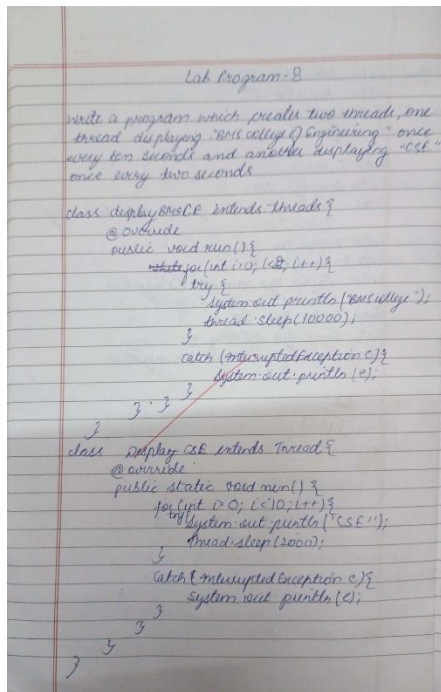 Lab Program-8
Write a program which creates two threads, one
thread displaying "BMS College of Engineering" once
every ten seconds and another displaying "CSE"
once every two seconds
class displayBMSCE extends threads {
@override
public void run() {
for(int i=0; i<2; i++) {
try {
System.out.println("BMS college");
thread.sleep(10000);
}
catch (InterruptedException e) {
System.out.println(e);
}
} } }
}
class Display CSE extends Thread {
@override
public static void run() {
for(int i=0; i<10; i++) {
try { System.out.println("CSE");
thread.sleep(2000);
}
catch (InterruptedException e) {
System.out.println(e);
}
}
}
}